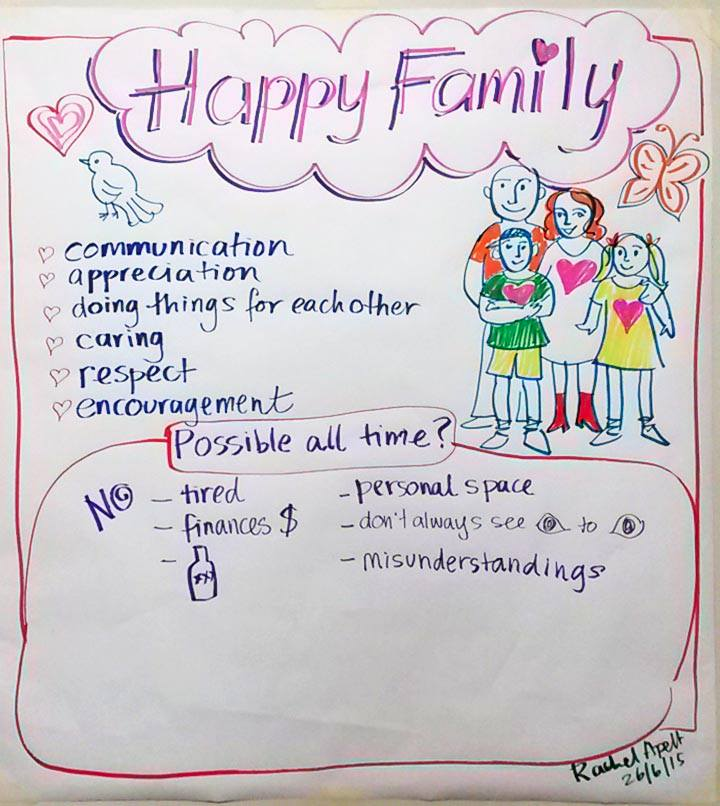 Happy Family
communication
appreciation
doing things for each other
caring
respect
encouragement
Possible all time?
NO
- tired
- finances $
-
- personal space
- don't always see to
- misunderstandings
Rachel Apelt
26/6/15